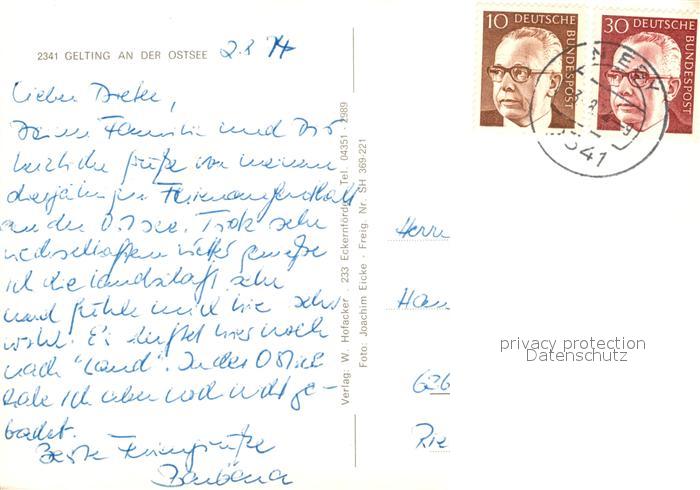 2341 GELTING AN DER OSTSEE 2.8 74
Lieber Dieter,
Deiner Familie und Dir
herzliche Grüße von meinem
diesjährigen Ferienaufenthalt
an der Ostsee. Trotz sehr
wechselhaftem Wetter genieße
ich die Landschaft sehr
und fühle mich hier sehr
wohl. Es duftet hier noch
nach "Land". In der Ostsee
habe ich aber noch nicht ge-
badet.
Beste Feriengrüße
Barbara
Verlag: W. Hofacker · 233 Eckernförde Tel. 04351 - 2989
Foto: Joachim Eicke - Freig. Nr. SH 369-221
10 DEUTSCHE BUNDESPOST
30 DEUTSCHE BUNDESPOST
2341
Herrn
Han
626
Rie
privacy protection
Datenschutz